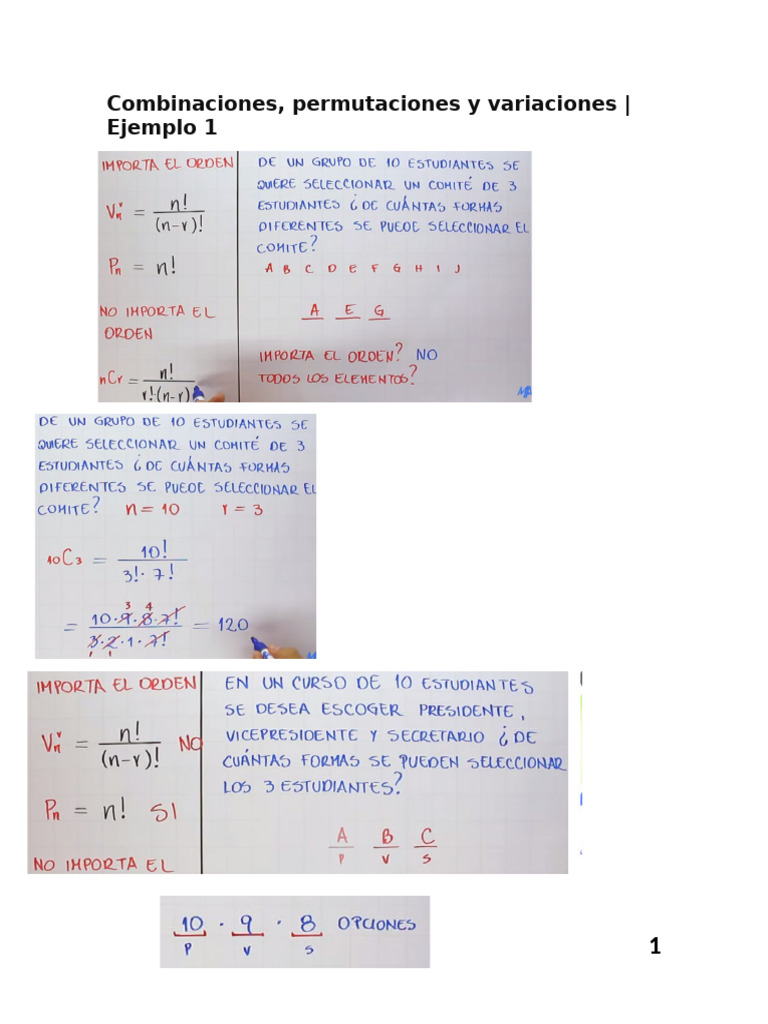 Combinaciones, permutaciones y variaciones |
Ejemplo 1
IMPORTA EL ORDEN
V_n^r = n! / (n-r)!
P_n = n!
NO IMPORTA EL
ORDEN
nCr = n! / r!·(n-r)
DE UN GRUPO DE 10 ESTUDIANTES SE
QUIERE SELECCIONAR UN COMITÉ DE 3
ESTUDIANTES ¿DE CUÁNTAS FORMAS
DIFERENTES SE PUEDE SELECCIONAR EL
COMITE?
A B C D E F G H I J
A E G
IMPORTA EL ORDEN? NO
TODOS LOS ELEMENTOS?
DE UN GRUPO DE 10 ESTUDIANTES SE
QUIERE SELECCIONAR UN COMITÉ DE 3
ESTUDIANTES ¿DE CUÁNTAS FORMAS
DIFERENTES SE PUEDE SELECCIONAR EL
COMITE? n = 10 r = 3
10C3 = 10! / 3!·7!
3 4
= 10·9·8·7! / 3·2·1·7! = 120
1 1
IMPORTA EL ORDEN
V_n^r = n! / (n-r)! NO
P_n = n! SI
NO IMPORTA EL
EN UN CURSO DE 10 ESTUDIANTES
SE DESEA ESCOGER PRESIDENTE,
VICEPRESIDENTE Y SECRETARIO ¿DE
CUÁNTAS FORMAS SE PUEDEN SELECCIONAR
LOS 3 ESTUDIANTES?
A B C
P V S
10 · 9 · 8 OPCIONES
P V S
1